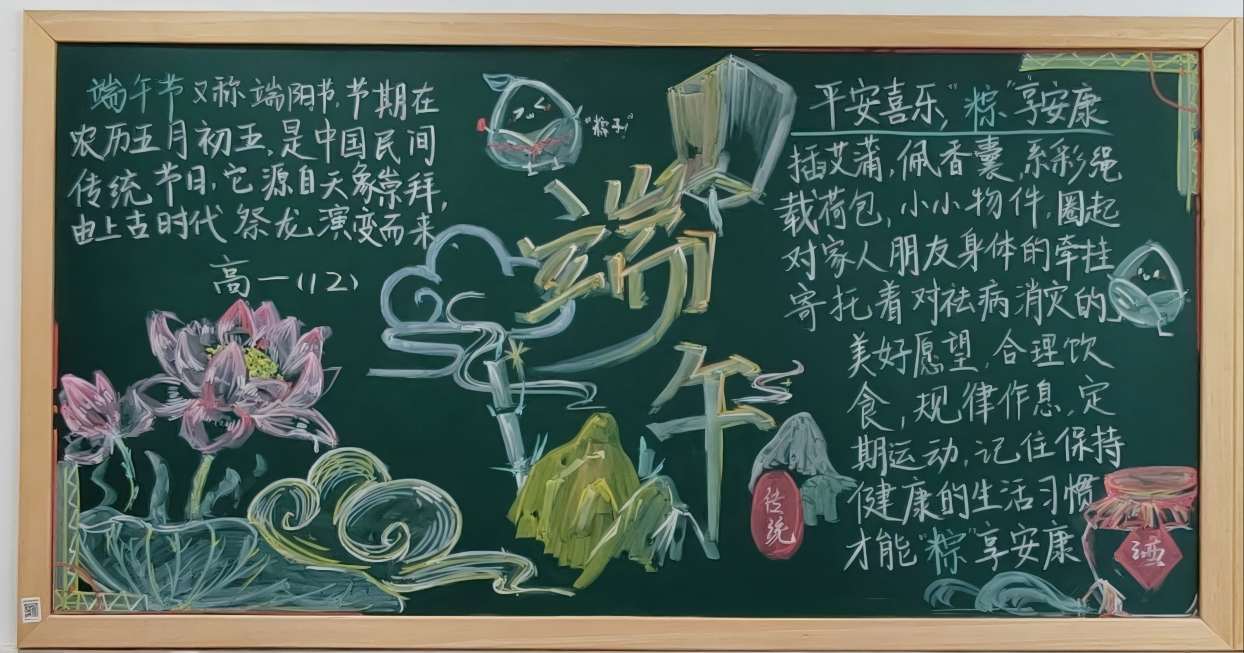 端午节又称端阳节,节期在
农历五月初五,是中国民间
传统节日,它源自天象崇拜,
由上古时代祭龙演变而来
高一(12)
"粽子"
端午
传统
平安喜乐,"粽"享安康
插艾蒲,佩香囊,系彩绳
载荷包,小小物件,圈起
对家人朋友身体的牵挂
寄托着对祛病消灾的
美好愿望,合理饮
食,规律作息,定
期运动,记住保持
健康的生活习惯
才能"粽"享安康
酒